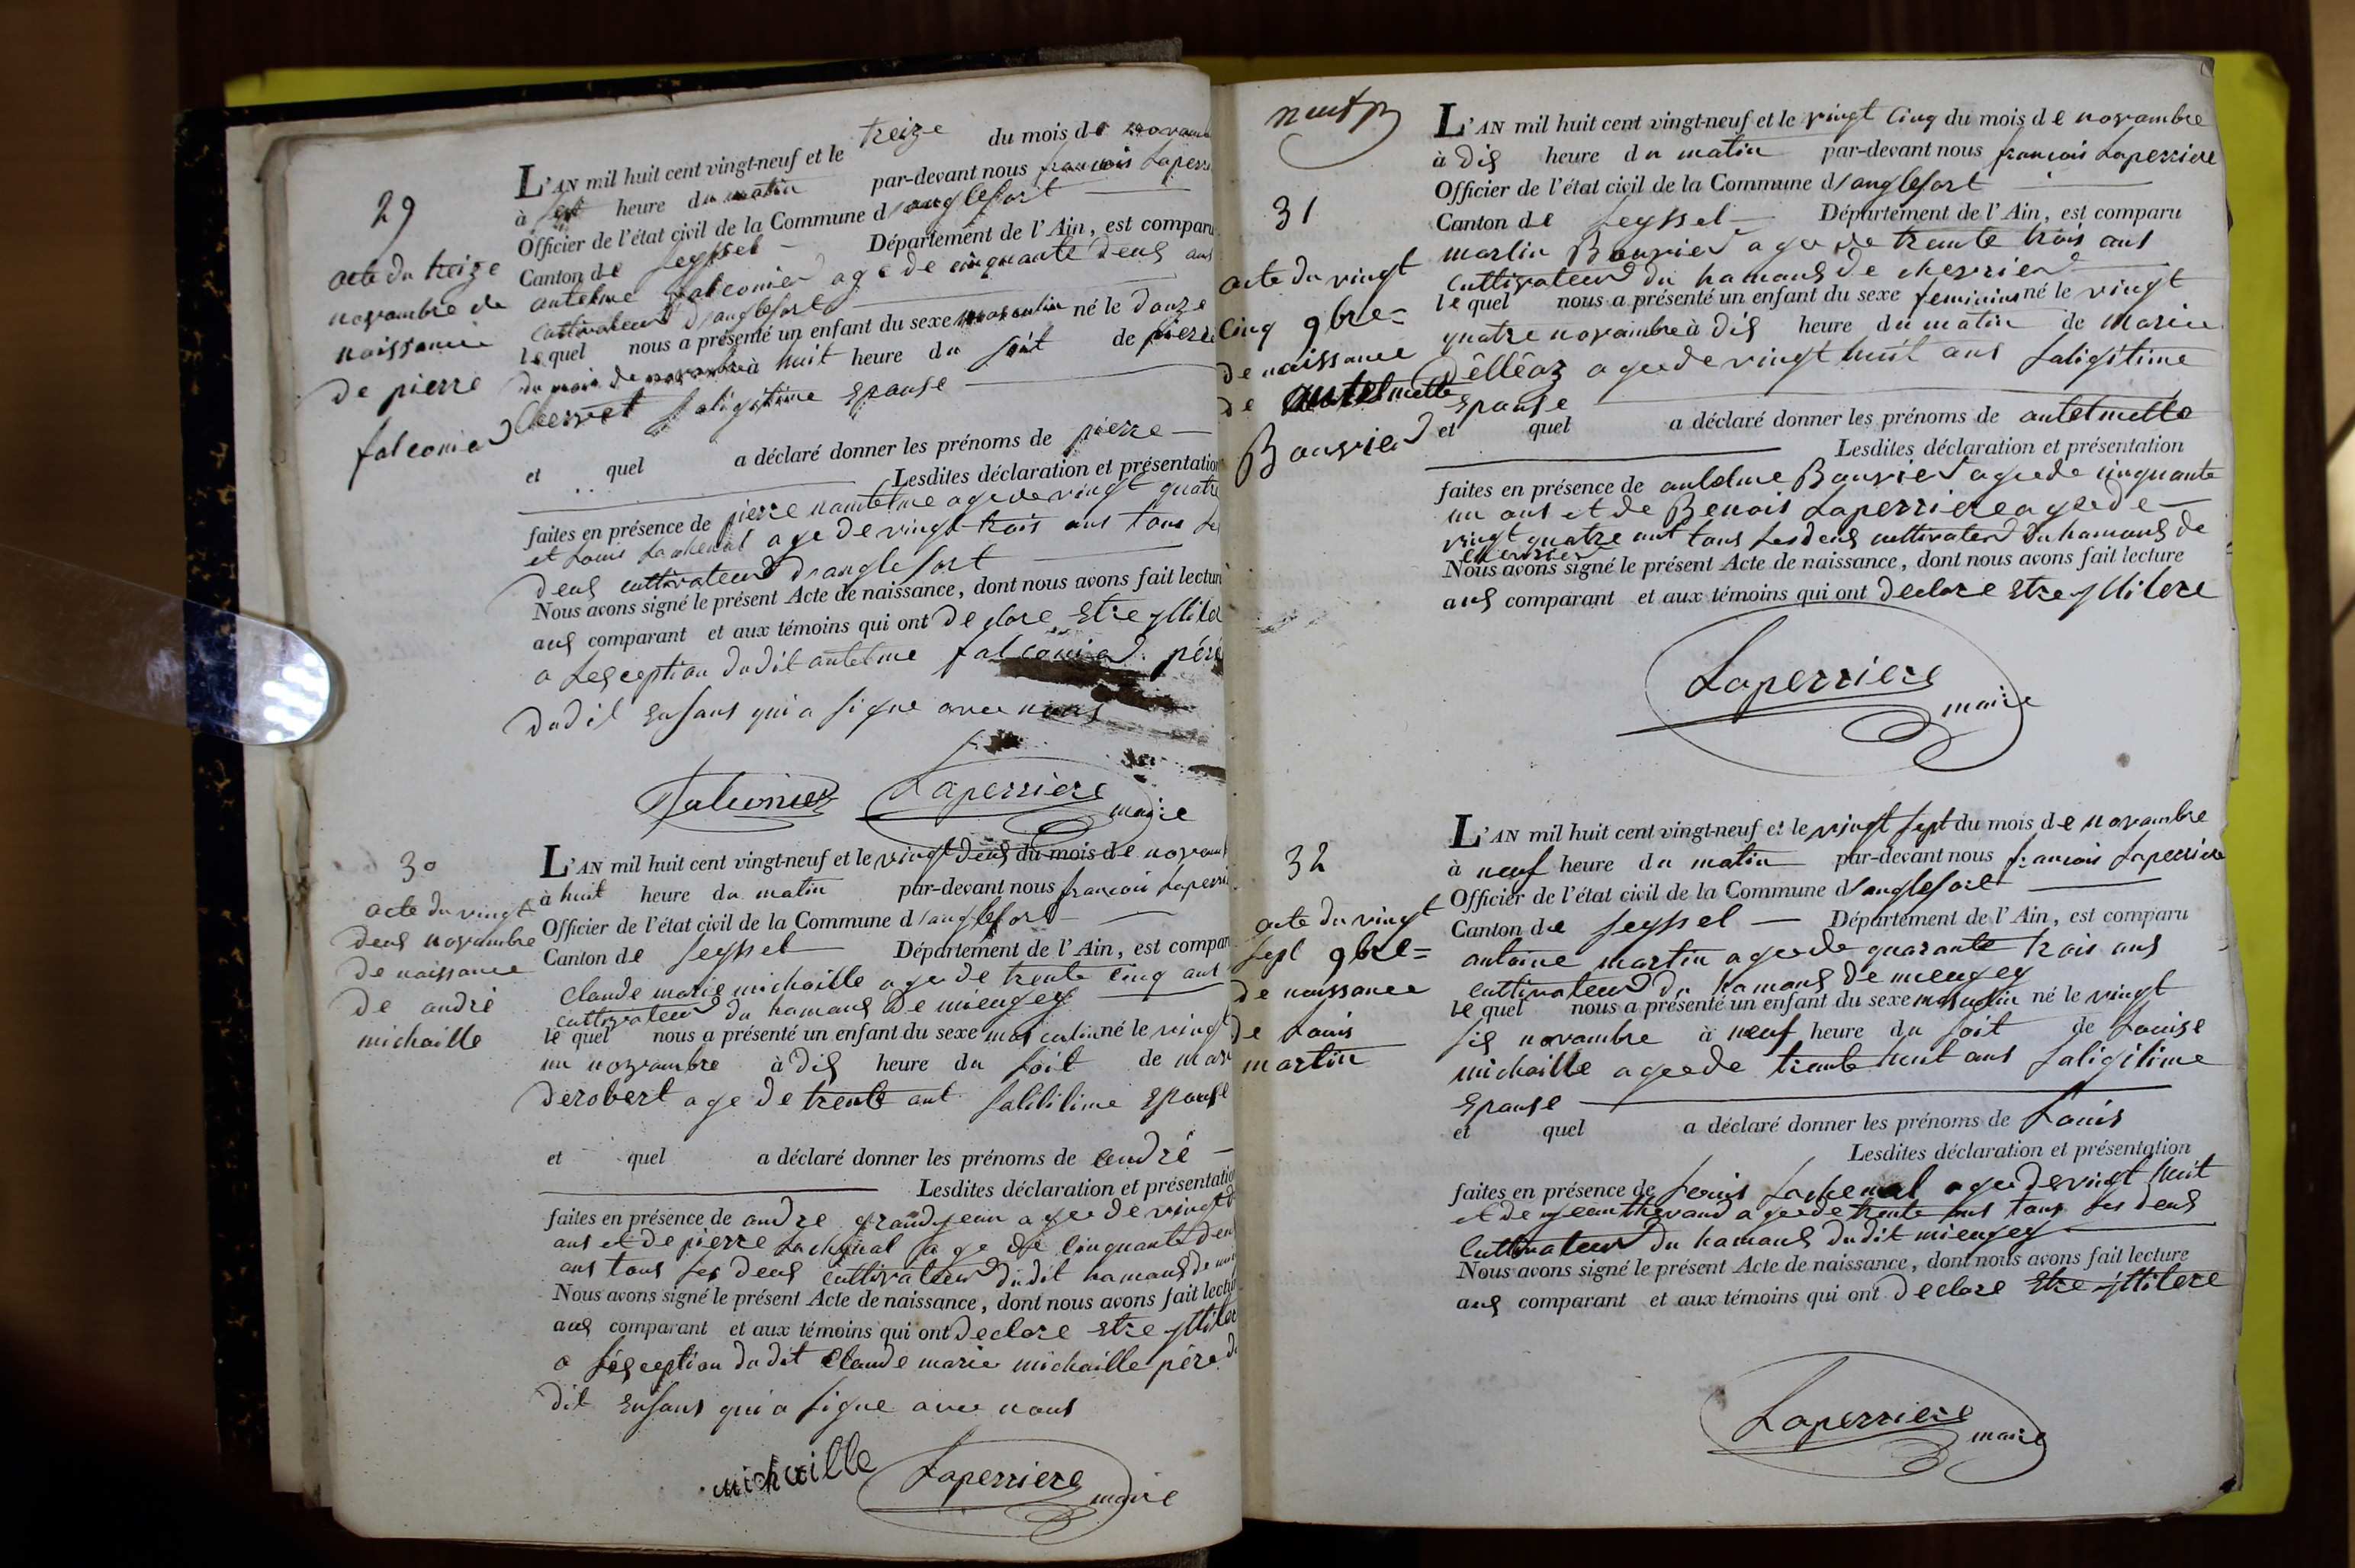 29
acte du treize
novambre de
naissance
de pierre
falconier
L'AN mil huit cent vingt-neuf et le treize du mois de novamb
à sept heure du matin par-devant nous francois Laperri
Officier de l'état civil de la Commune d'anglefort
Canton de Seyssel Département de l'Ain, est comparu
antelme falconier age de cinquante deus ans
cultivateur d'anglefort
lequel nous a présenté un enfant du sexe masculin né le douze
du mois de novambre à huit heure du soit de pierre
perret saligitime Epouse
et quel a déclaré donner les prénoms de pierre
Lesdites déclaration et présentation
faites en présence de pierre nantelme age de vingt quatre
et Louis Lachenal age de vingt trois ans tous les
deus cultivateur d'anglefort
Nous avons signé le présent Acte de naissance, dont nous avons fait lecture
aus comparant et aux témoins qui ont declare Etre yllite
a Lesception dudit antelme falconier père
dudit Ensans qui a signe avec nous
Falconier Laperriere maire
30
acte du vingt
deus novambre
de naissance
de andré
michaille
L'AN mil huit cent vingt-neuf et le vingt deus du mois de novam
à huit heure du matin par-devant nous francois Laperri
Officier de l'état civil de la Commune d'anglefort
Canton de Seyssel Département de l'Ain, est compar
Claude marie michaille age de trente cinq ans
cultivateur du hamaus de miengey
le quel nous a présenté un enfant du sexe masculin né le vingt
un novambre à dis heure du soit de mari
derobert age de trente ant salitilime Epouse
et quel a déclaré donner les prénoms de andré
Lesdites déclaration et présentatio
faites en présence de andre grandjean agee de vingt
ans et de pierre Lachenal age de cinquante deu
ans tous les deus cultivateur dudit hamaus de mi
Nous avons signé le présent Acte de naissance, dont nous avons fait lectur
aus comparant et aux témoins qui ont declare Etre yllite
a Lésception dudit Claude marie michaille père du
dit Ensans qui a signe avec nous
michaille Laperriere maire
31
acte du vingt
Cinq 9bre=
de naissance
de antelmette
Bouvier
L'AN mil huit cent vingt-neuf et le vingt Cinq du mois de novambre
à dis heure du matin par-devant nous francois Laperriere
Officier de l'état civil de la Commune d'anglefort
Canton de Seyssel Département de l'Ain, est comparu
martin Bouvier agee de trente trois ans
cultivateur du hamaus de chevrier
le quel nous a présenté un enfant du sexe feminin né le vingt
quatre novambre à dis heure du matin de marie
Délléaz agee de vingt huit ans saligitime
Epouse
et quel a déclaré donner les prénoms de antelmette
Lesdites déclaration et présentation
faites en présence de antelme Bouvier agee de cinquante
un ans et de Benois Laperriere agee de
vingt quatre ant tous les deus cultivateur du hamaus de
chevrier
Nous avons signé le présent Acte de naissance, dont nous avons fait lecture
aus comparant et aux témoins qui ont declare Etre yllitere
Laperriere maire
32
acte du vingt
Sept 9bre=
de naissance
de Louis
martin
L'AN mil huit cent vingt-neuf et le vingt sept du mois de novambre
à neuf heure du matin par-devant nous francois Laperriere
Officier de l'état civil de la Commune d'anglefort
Canton de Seyssel Département de l'Ain, est comparu
antoine martin agee de quarante trois ans
cultivateur du hamaus de miengey
le quel nous a présenté un enfant du sexe masculin né le vingt
sis novambre à neuf heure du soit de Louise
michaille agee de trente huit ans saligitime
Epouse
et quel a déclaré donner les prénoms de Louis
Lesdites déclaration et présentation
faites en présence de Louis Lachenal agee de vingt huit
et de jean thevand agee de trente ans tous les deus
Cultivateur du hamaus dudit miengey
Nous avons signé le présent Acte de naissance, dont nous avons fait lecture
aus comparant et aux témoins qui ont declare Etre yllitere
Laperriere maire